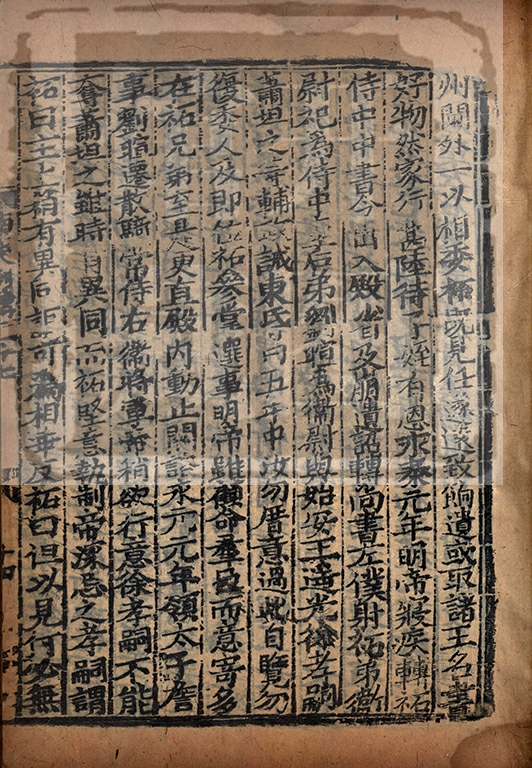 州閫外一以相委祏既見任遂遠致餉遺或取諸王名書
好物然家行甚睦待子姪有恩永泰元年明帝寢疾轉祏
侍中中書令出入殿省及崩遺詔轉尚書左僕射祏弟衛
尉祀爲侍中皇后弟劉暄爲衛尉與始安王遙光徐孝嗣
蕭坦之等輔政誡東昏曰五年中汝勿厝意過此自覽勿
復委人及即位祏參掌選事明帝雖顧命羣臣而意寄多
在祏兄弟至是更直殿內動止關諮永元元年領太子詹
事劉暄遷散騎常侍右衛將軍帝稍欲行意徐孝嗣不能
奪蕭坦之雖時有異同而祏堅意執制帝深忌之孝嗣謂
祏曰主上稍有異同詎可爲相乖反祏曰但以見付必無